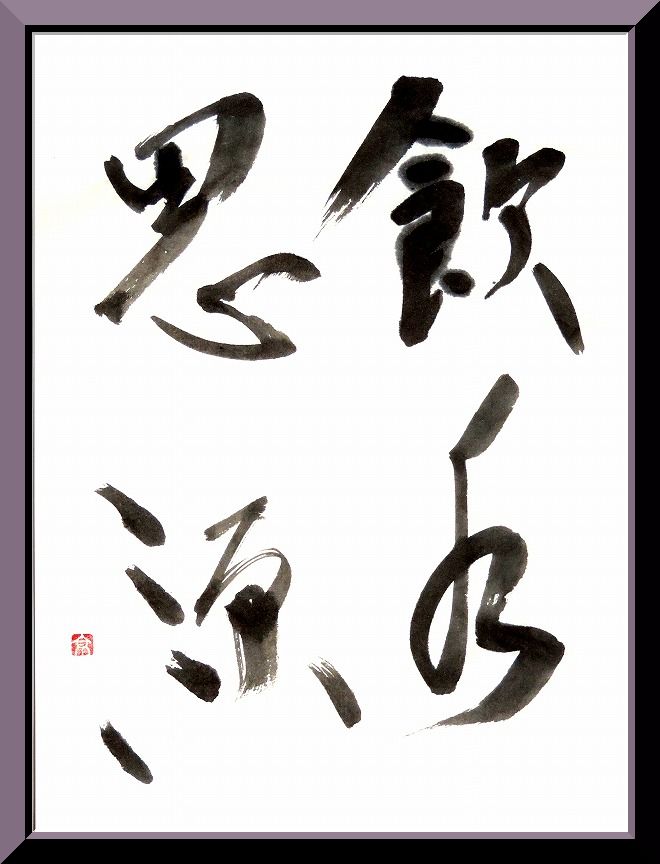 飲水
思源